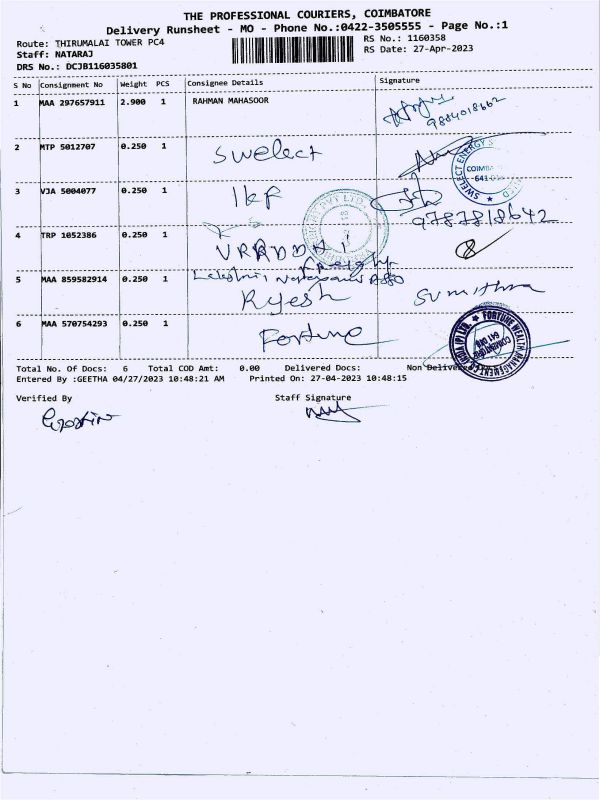 THE PROFESSIONAL COURIERS, COIMBATORE
Delivery Runsheet - MO - Phone No.:0422-3505555 - Page No.:1
Route: THIRUMALAI TOWER PC4
Staff: NATARAJ
DRS No.: DCJB116035801
RS No.: 1160358
RS Date: 27-Apr-2023
S No Consignment No Weight PCS Consignee Details Signature
1 MAA 297657911 2.900 1 RAHMAN MAHASOOR
9884018662
2 MTP 5012707 0.250 1 Swelect
SWELECT ENERGY
COIMBA
641
3 VJA 5004077 0.250 1
9787818642
4 TRP 1052386 0.250 1
5 MAA 859582914 0.250 1 Sumithra
6 MAA 570754293 0.250 1 Fortune
FORTUNE HEALTH MANAGEMENT
COIMBATORE
Total No. of Docs: 6 Total COD Amt: 0.00 Delivered Docs: Non Delivered
Entered By :GEETHA 04/27/2023 10:48:21 AM Printed On: 27-04-2023 10:48:15
Verified By Staff Signature